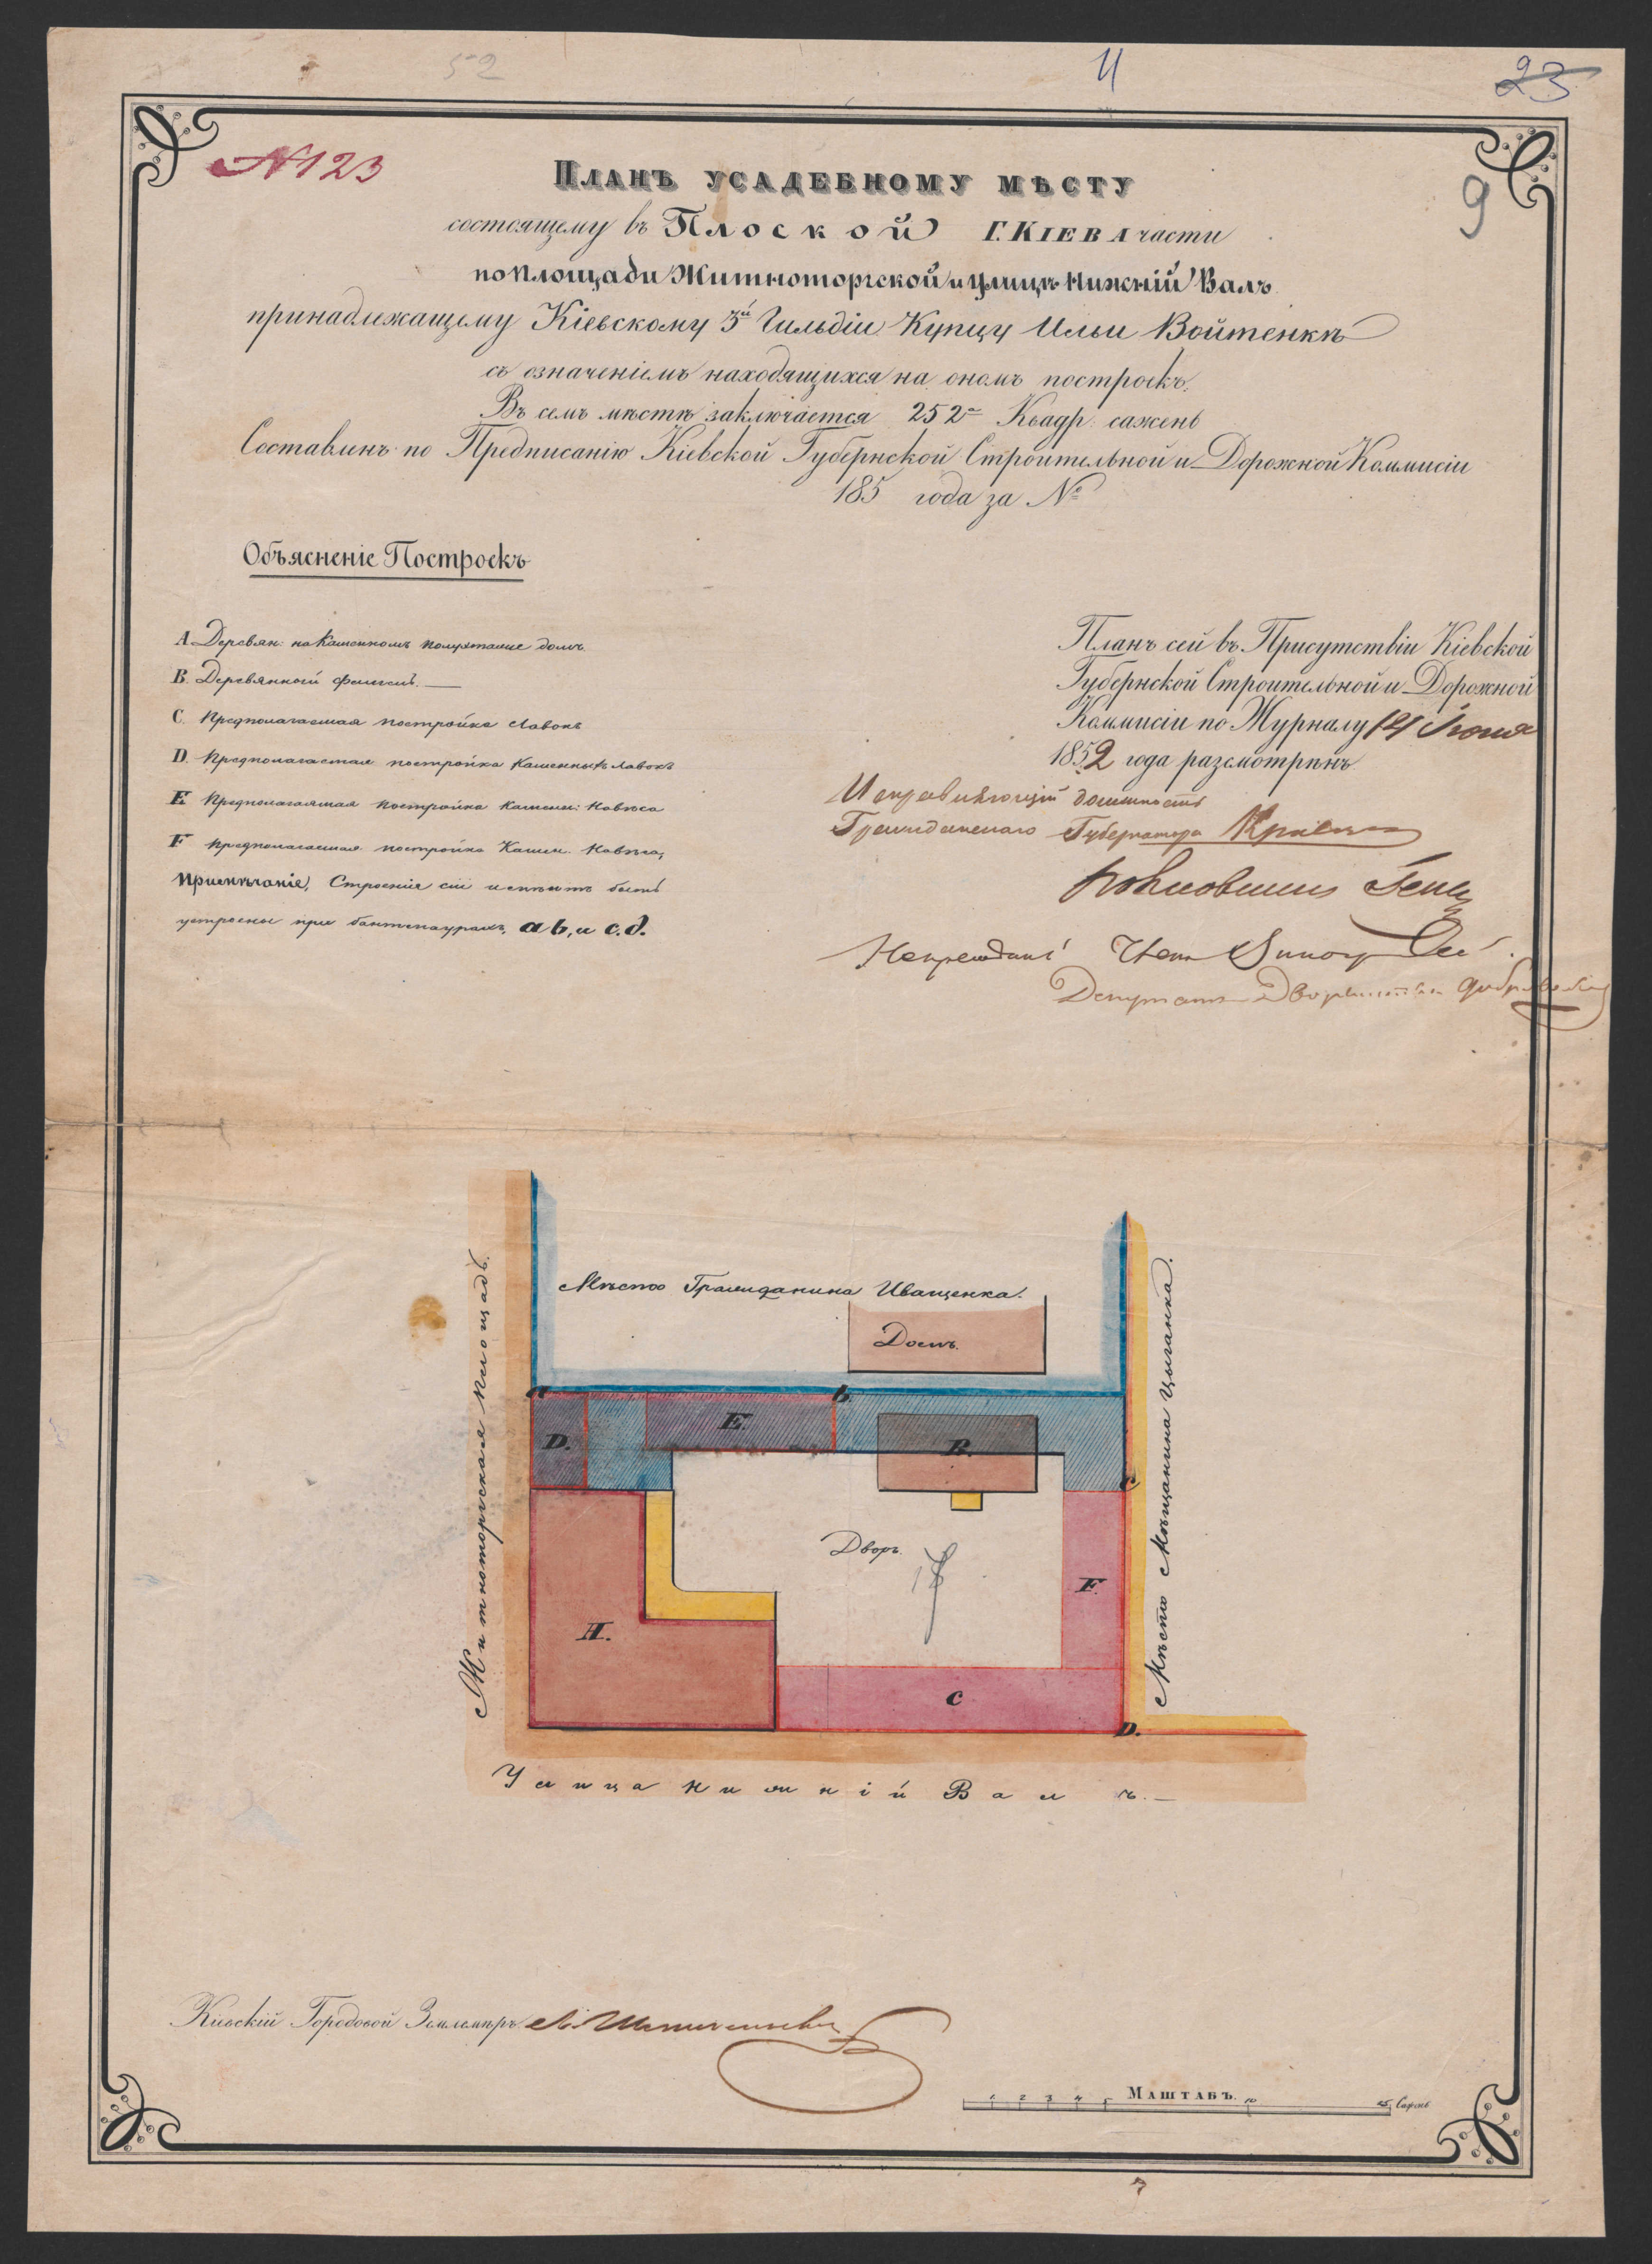 52
11
23
№ 123
9
ПЛАНЪ УСАДЕБНОМУ МѢСТУ
состоящему въ Плоской Г. КІЕВА части
по площади Житноторгской и улицѣ Нижній Валъ
принадлежащему Кіевскому 3й Гильдіи Купцу Ильи Войтенкѣ
съ означеніемъ находящихся на ономъ построекъ.
Въ семъ мѣстѣ заключается 252 Квадр: сажень
Составленъ по Предписанію Кіевской Губернской Строительной и Дорожной Коммисіи
185 года за №
Объясненіе Построекъ
А. Деревян: на Каменномъ полуэтаже домъ.
В. Деревянный флигель.
С. Предполагаемая постройка Лавокъ
D. Предполагаемая постройка Каменныхъ Лавокъ
E. Предполагаемая постройка Каменн: Навѣса
F. предполагаемая постройка Камен. Навѣса,
Примѣчаніе, Строенія сіи имѣютъ быть
устроены при бантмаурахъ, a b, и c. d.
Планъ сей въ Присутствіи Кіевской
Губернской Строительной и Дорожной
Коммисіи по Журналу 14 Іюня
1852 года разсмотрѣнъ.
Исправляющій должность
Гражданскаго Губернатора
Непремѣнный Членъ
Депутатъ Дворянства
Мѣсто Гражданина Иващенка.
Домъ.
Житноторгская площадь.
Мѣсто Мѣщанина Цыганка.
a
b
D.
E.
B.
C
Дворъ.
18
F.
H.
C
D.
Улица Нижній Валъ.
Кіевскій Городовой Землемѣръ
МАШТАБЪ.
1 2 3 4 5 10 15 Сажень